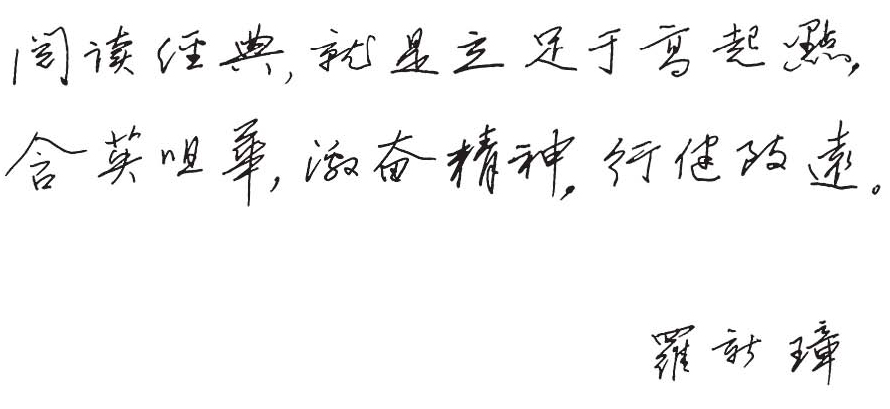 阅读經典,就是立足于高起點,
含英咀華,激奋精神,行健致遠。
羅新璋